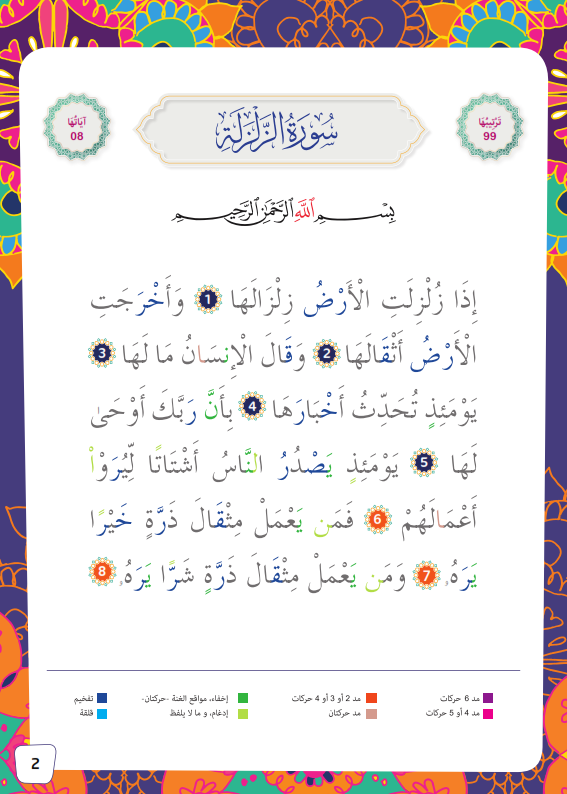 تَرْتِيبُهَا
99
سُورَةُ الزَّلْزَلَةِ
آيَاتُهَا
08
بِسْمِ اللَّهِ الرَّحْمَٰنِ الرَّحِيمِ
إِذَا زُلْزِلَتِ الْأَرْضُ زِلْزَالَهَا 1 وَأَخْرَجَتِ
الْأَرْضُ أَثْقَالَهَا 2 وَقَالَ الْإِنسَانُ مَا لَهَا 3
يَوْمَئِذٍ تُحَدِّثُ أَخْبَارَهَا 4 بِأَنَّ رَبَّكَ أَوْحَىٰ
لَهَا 5 يَوْمَئِذٍ يَصْدُرُ النَّاسُ أَشْتَاتًا لِّيُرَوْاْ
أَعْمَالَهُمْ 6 فَمَن يَعْمَلْ مِثْقَالَ ذَرَّةٍ خَيْرًا
يَرَهُۥ 7 وَمَن يَعْمَلْ مِثْقَالَ ذَرَّةٍ شَرًّا يَرَهُۥ 8
مد 6 حركات
مد 2 أو 3 أو 4 حركات
إخفاء، مواقع الغنة -حركتان-
تفخيم
مد 4 أو 5 حركات
مد حركتان
إدغام، و ما لا يلفظ
قلقة
2